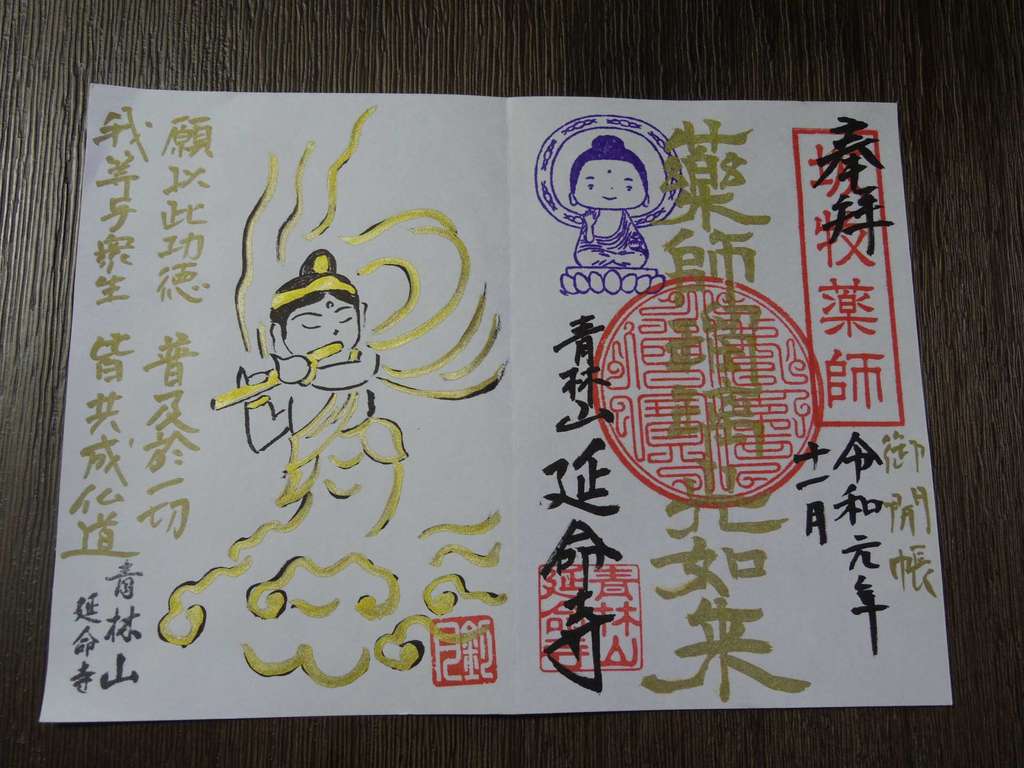 奉拝
牧薬師
御開帳
令和元年
十一月
薬師瑠璃光如来
青林山
延命寺
青林山
延命寺
願以此功徳
普及於一切
我等与衆生
皆共成仏道
青林山
延命寺